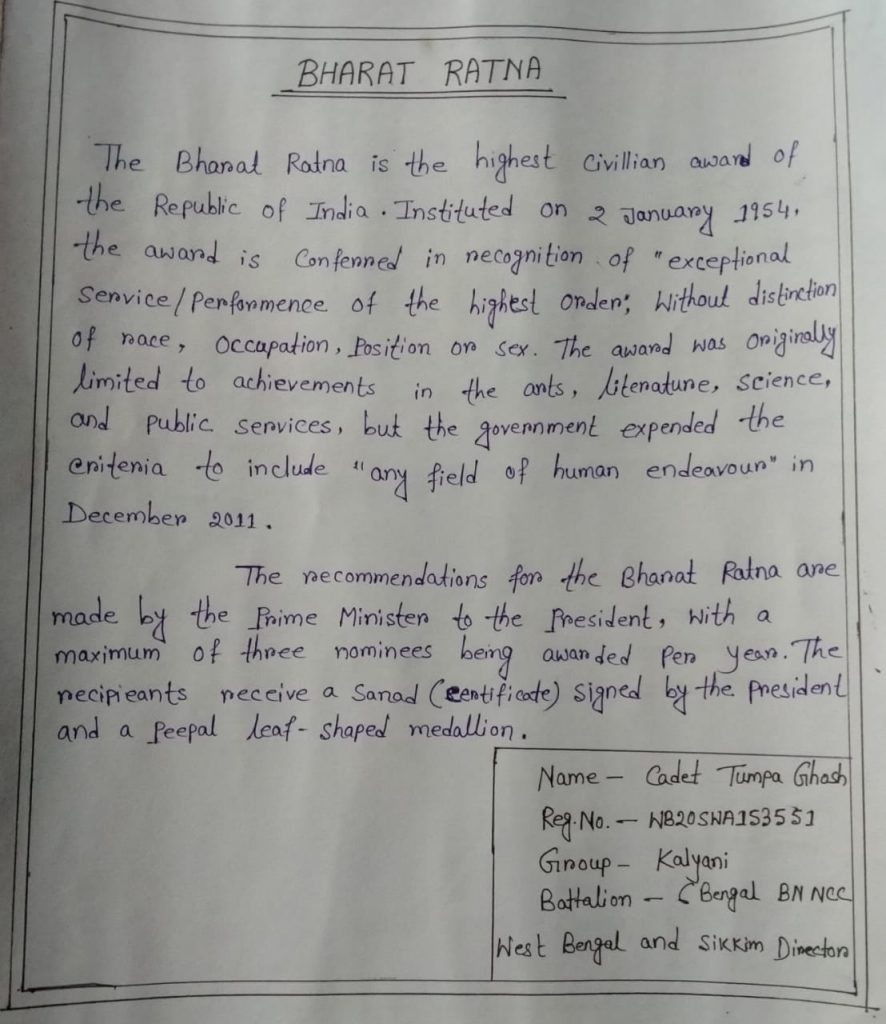 BHARAT RATNA
The Bharat Ratna is the highest civillian award of
the Republic of India. Instituted on 2 January 1954.
the award is Conferred in recognition of "exceptional
Service/Performence of the highest order; Without distinction
of race, Occupation, Position or sex. The award was Originally
limited to achievements in the arts, literature, science,
and public services, but the government expended the
criteria to include "any field of human endeavour" in
December 2011.
The recommendations for the Bharat Ratna are
made by the Prime Minister to the President, With a
maximum of three nominees being awarded Per year. The
recipieants receive a Sanad (certificate) Signed by the President
and a Peepal leaf-shaped medallion.
Name - Cadet Tumpa Ghosh
Reg.No. - WB20SWA153551
Group - Kalyani
Battalion - Bengal BN NCC
West Bengal and Sikkim Director